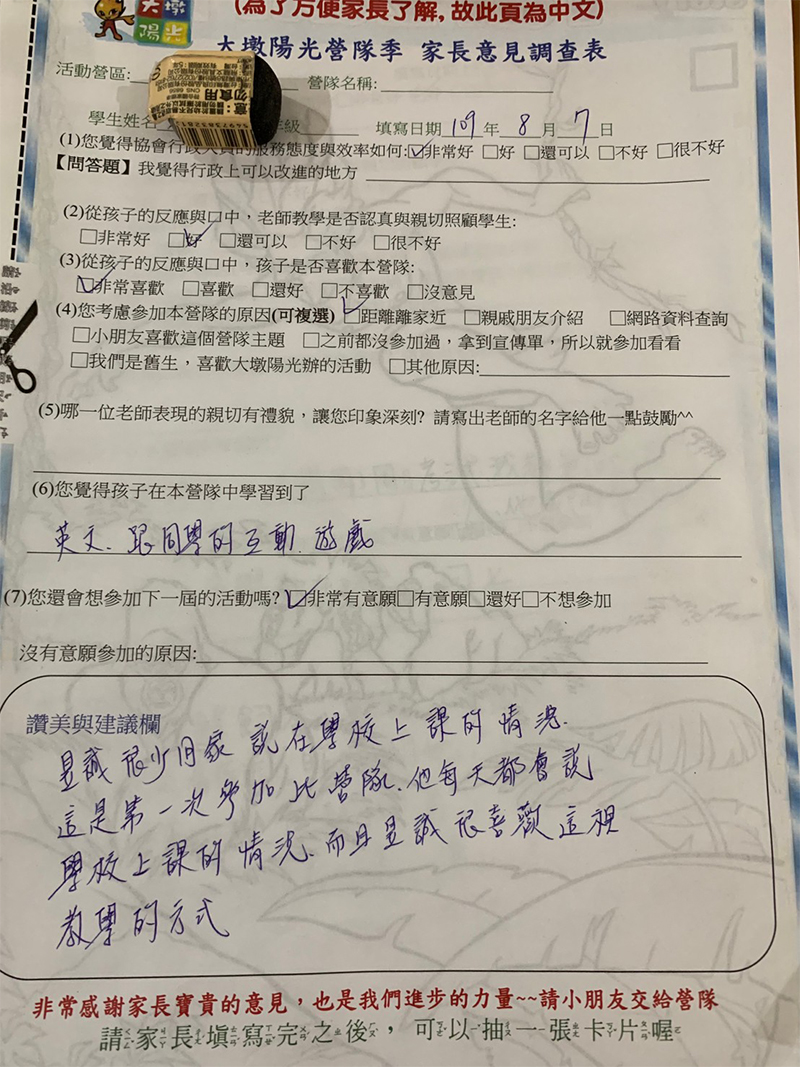 (為了方便家長了解,故此頁為中文)
大墩
陽光
大墩陽光營隊季 家長意見調查表
活動營區: 營隊名稱:
勿食用
學生姓名 年級 填寫日期 109 年 8 月 7 日
(1)您覺得協會行政人員的服務態度與效率如何:☑非常好 □好 □還可以 □不好 □很不好
【問答題】我覺得行政上可以改進的地方
(2)從孩子的反應與口中,老師教學是否認真與親切照顧學生:
□非常好 ☑好 □還可以 □不好 □很不好
(3)從孩子的反應與口中,孩子是否喜歡本營隊:
☑非常喜歡 □喜歡 □還好 □不喜歡 □沒意見
(4)您考慮參加本營隊的原因(可複選) ☑距離離家近 □親戚朋友介紹 □網路資料查詢
□小朋友喜歡這個營隊主題 □之前都沒參加過,拿到宣傳單,所以就參加看看
□我們是舊生,喜歡大墩陽光辦的活動 □其他原因:
(5)哪一位老師表現的親切有禮貌,讓您印象深刻? 請寫出老師的名字給他一點鼓勵^^
(6)您覺得孩子在本營隊中學習到了
英文、跟同學的互動、遊戲
(7)您還會想參加下一屆的活動嗎? ☑非常有意願□有意願□還好□不想參加
沒有意願參加的原因:
讚美與建議欄
昱誠很少回家說在學校上課的情況.
這是第一次參加此營隊、他每天都會說
學校上課的情況、而且昱誠很喜歡這視
教學的方式
非常感謝家長寶貴的意見,也是我們進步的力量~~請小朋友交給營隊
請家長填寫完之後, 可以抽一張卡片喔